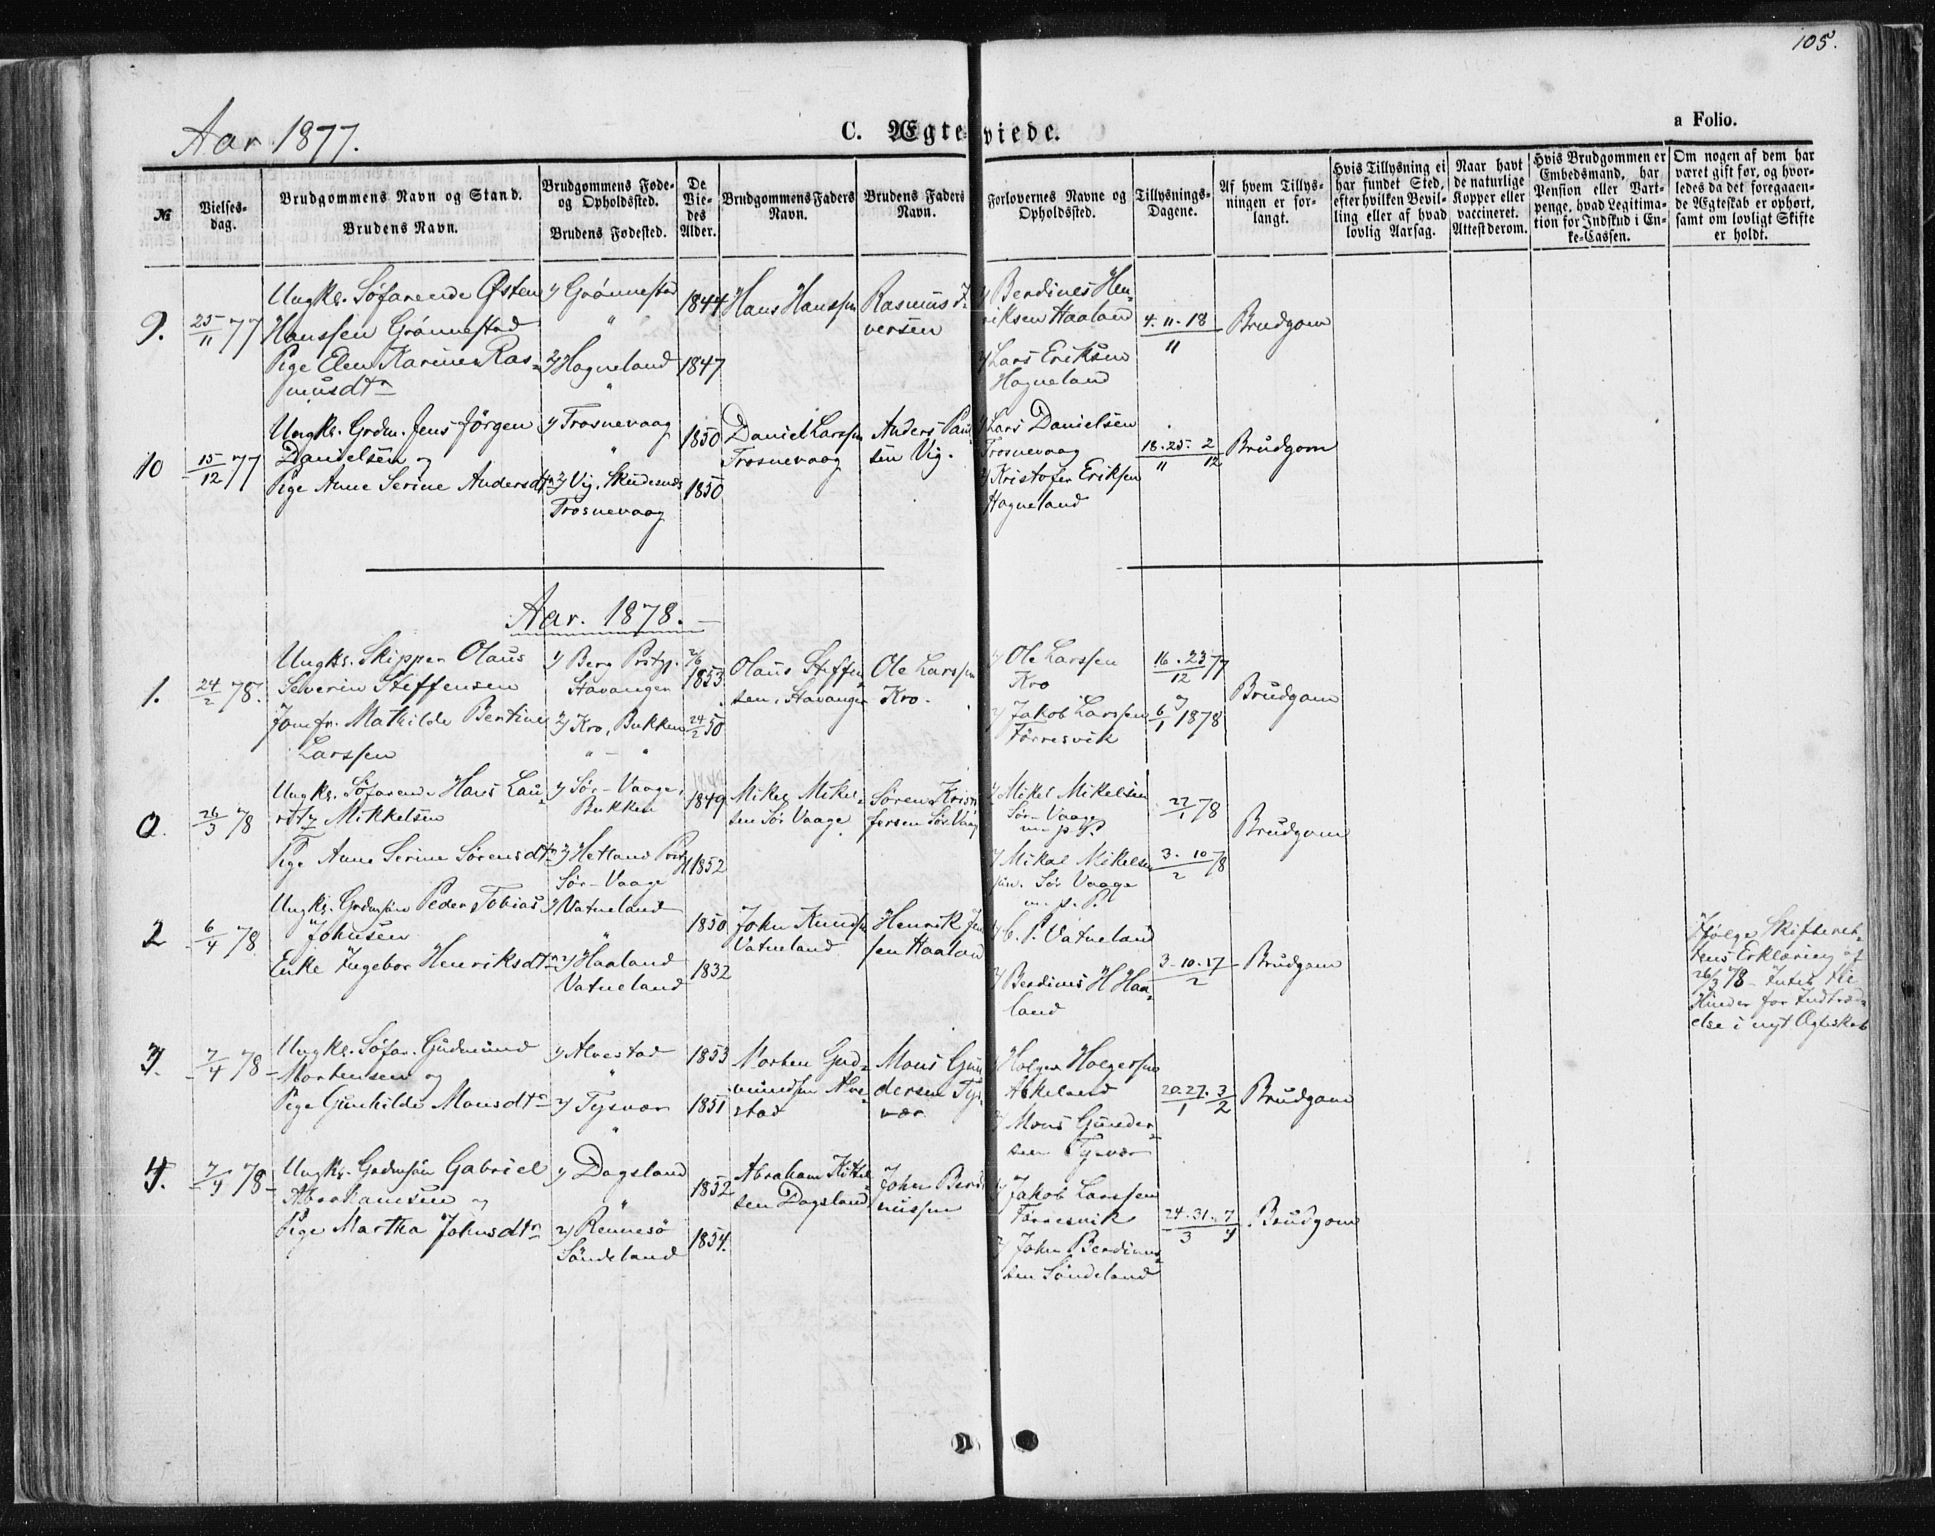 105.
Aar 1877.
C. Ægteviede.
a Folio.
№
Vielses-
dag.
Brudgommens Navn og Stand.
Brudens Navn.
Brudgommens Føde-
og Opholdssted.
Brudens Fødested.
De
Vie-
des
Alder.
Brudgommens Faders
Navn.
Brudens Faders
Navn.
Forlovernes Navne og
Opholdssted.
Tillysnings-
Dagene.
Af hvem Tillys-
ningen er for-
langt.
Hvis Tillysning ei
har fundet Sted,
efter hvilken Bevil-
ling eller af hvad
lovlig Aarsag.
Naar havt
de naturlige
Kopper eller
vaccineret.
Attest derom.
Hvis Brudgommen er
Embedsmand, har
Pension eller Vart-
penge, hvad Legitima-
tion for Indskud i En-
ke-Cassen.
Om nogen af dem har
været gift før, og hvor-
ledes da det foregaaen-
de Ægteskab er ophørt,
samt om lovligt Skifte
er holdt.
9.
25/11 77
Ungkr. Søfarende Østen
Hanssen Grønnestad
Pige Elen Karine Ras-
musdtr
1) Grønnestad
"
2) Hagneland
"
1844
1847
Hans Hanssen
Rasmus I-
versen
1) Berdines Hen-
riksen Haaland
2) Lars Eriksen
Hagneland
4. 11. 18/11
Brudgom
10
15/12 77
Ungkr. Grdm. Jens Jørgen
Danielsen og
Pige Anne Serine Andersdtr
1) Trosnevaag
"
2) Vig, Skudesnes
Trosnevaag
1850
1850
Daniel Larssen
Trosnevaag
Anders Paul-
sen Vig.
1) Lars Danielsen
Trosnevaag
2) Kristofer Eriksen
Hagneland
18. 25/11 2/12
Brudgom
Aar. 1878.
1.
24/2 78.
Ungkr. Skipper Olaus
Severin Steffensen
Jomfr. Mathilde Bertine
Larssen
1) Berg Prstgj.
Stavanger
2) Kro, Bukken
" - "
2/6
1853
24/2 50
Olaus Steffen-
sen, Stavanger
Ole Larssen
Kro.
1) Ole Larssen
Kro
2) Jakob Larssen
Førresvik
16. 23/12 77
og
6/1 1878
Brudgom
0.
26/3 78
Ungkr. Søfarende Hans Lau-
ritz Mikkelsen
Pige Anne Serine Sørensdtr
1) Sør-Vaage,
Bukken
2) Hetland Prstgj
Sør-Vaage
1849
1852
Mikel Mikel-
sen Sør Vaage
Søren Krist
fersen Sør Vaag
1) Mikel Mikelsen
Sør-Vaage
m. p. P.
2) Mikal Mikelsen
jun. Sør Vaage
m. p. P.
27/1 78
3. 10/2 78
Brudgom
2
6/4 78
Ungkr. Grdmsøn Peder Tobias
Johnsen
Enke Ingebor Henriksdtr
1) Vatneland
"
2) Haaland
Vatneland
1850
1832
John Knudsen
Vatneland
Henrik Jen
sen Haaland
1) C. P. Vatneland
2) Berdinus H Haa-
land
3. 10. 17/2
Brudgom
Ifølge Skifteret-
tens Erklæring af
26/3 78 - Intet til
Hinder for Indtræd-
else i nyt Ægteskab
3.
7/4 78
Ungkr. Søfar. Gudmund
Mortensen og
Pige Gunhilde Monsdtr
1) Alvestad
"
2) Tysvær
"
1853
1851
Morten Gud-
mundsen Alve-
stad
Mons Gun
dersen Tys-
vær
1) Holger Holgersen
Askeland
2) Mons Gunder-
sen Tysvær
20. 27/1. 3/2
Brudgom
4.
7/4 78
Ungkr. Grdmsøn Gabriel
Abrahamsen og
Pige Martha Johnsdtr
1) Dagsland
"
2) Rennesø
Søndeland
1852
1854.
Abraham Kittel-
sen Dagsland
John Berdi
nussen
1) Jakob Larssen
Førresvik
2) John Berdinus-
sen Søndeland
24. 31/3. 7/4
Brudgom